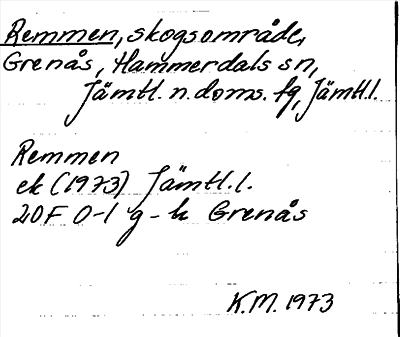 Remmen, skogsområde,
Grenås, Hammerdals sn,
Jämtl. n. doms. fg, Jämtl. l.
Remmen
ek (1973) Jämtl. l.
20F 0-1 g-h Grenås
K.M. 1973